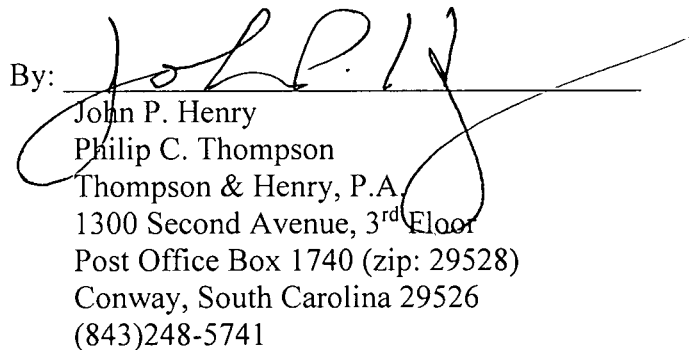 By: John P. Hy
John P. Henry
Philip C. Thompson
Thompson & Henry, P.A.
1300 Second Avenue, 3rd Floor
Post Office Box 1740 (zip: 29528)
Conway, South Carolina 29526
(843)248-5741